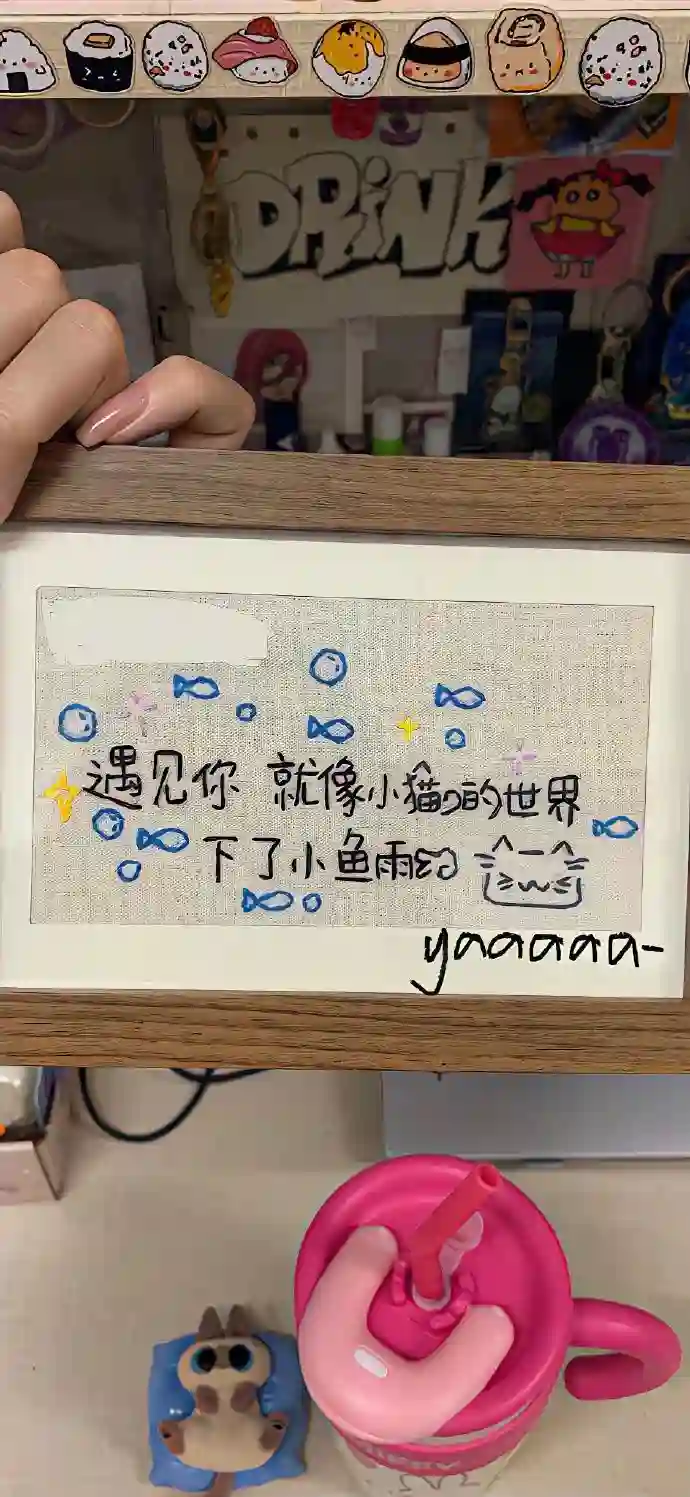 DRiNK
遇见你 就像小猫的世界
下了小鱼雨
yaaaaaa-